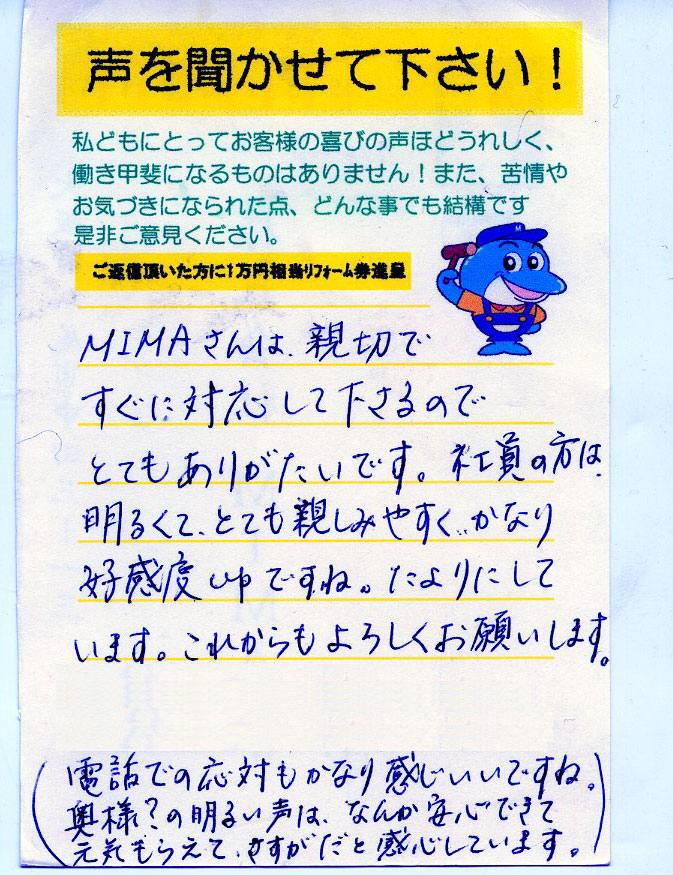 声を聞かせて下さい！
私どもにとってお客様の喜びの声ほどうれしく、
働き甲斐になるものはありません！また、苦情や
お気づきになられた点、どんな事でも結構です
是非ご意見ください。
ご返信頂いた方に1万円相当リフォーム券進呈
M
MIMAさんは、親切で
すぐに対応して下さるので
とてもありがたいです。社員の方は、
明るくて、とても親しみやすく、かなり
好感度upですね。たよりにして
います。これからもよろしくお願いします。
(電話での応対もかなり感じいいですね。
奥様？の明るい声は、なんか安心できて
元気もらえて、さすがだと感心しています。)